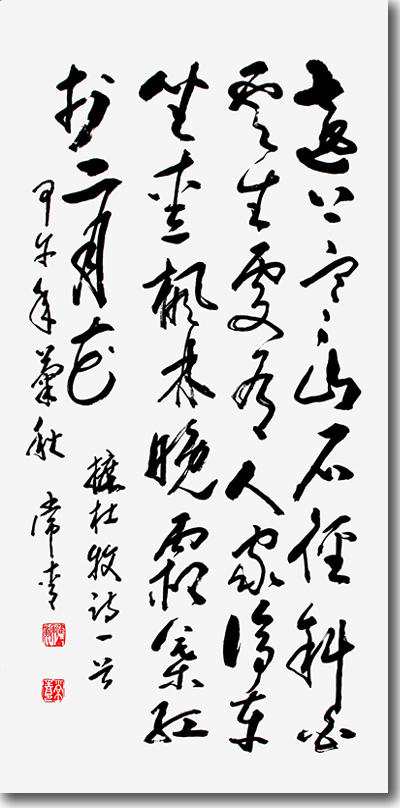 遠上寒山石徑斜白
雲生處有人家停車
坐愛楓林晚霜葉紅
於二月花
摭杜牧詩一首
甲午年菊秋 常青